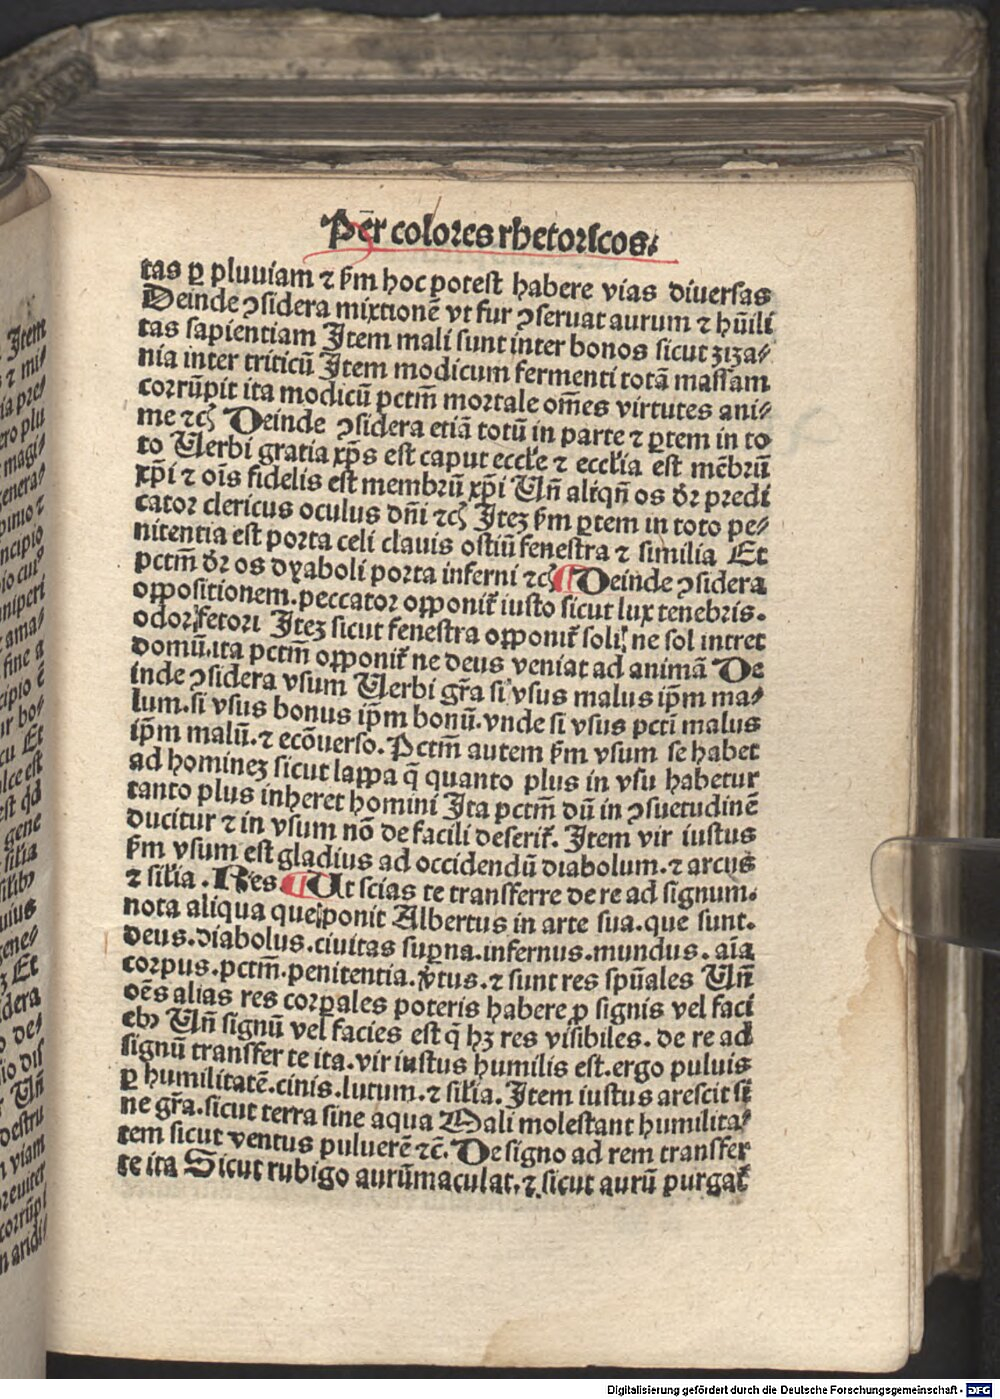 Per colores rhetoricos.
tas ꝑ pluuiam ⁊ ẜm hoc potest habere vias diuersas
Deinde ꝯsidera mixtionē vt fur ꝯseruat aurum ⁊ hūili
tas sapientiam Item mali sunt inter bonos sicut ziza⸗
nia inter triticū Item modicum fermenti totā massam
corrūpit ita modicū pctm̄ mortale om̄es virtutes ani⸗
me ⁊cꝫ Deinde ꝯsidera etiā totū in parte ⁊ ꝑtem in to
to Uerbi gratia xp̄s est caput eccl̄e ⁊ eccl̄ia est mēbrū
xp̄i ⁊ oīs fidelis est membrū xp̄i Un̄ aliqn̄ os dr̄ predi
cator clericus oculus dn̄i ⁊cꝫ Iteꝫ ẜm ꝑtem in toto pe⸗
nitentia est porta celi clauis ostiū fenestra ⁊ similia Et
pctm̄ dr̄ os dyaboli porta inferni ⁊cꝫ Deinde ꝯsidera
oppositionem. peccator opponit̄ iusto sicut lux tenebris.
odor fetori Iteꝫ sicut fenestra opponit̄ soli ne sol intret
domū. ita pctm̄ opponit̄ ne deus veniat ad animā De
inde ꝯsidera vsum Uerbi gr̄a si vsus malus ip̄m ma⸗
lum. si vsus bonus ip̄m bonū. vnde si vsus pcti malus
ip̄m malū. ⁊ ecōuerso. Pctm̄ autem ẜm vsum se habet
ad homineꝫ sicut lappa q̄ quanto plus in vsu habetur
tanto plus inheret homini Ita pctm̄ dū in ꝯsuetudinē
ducitur ⁊ in vsum nō de facili deserit̄. Item vir iustus
ẜm vsum est gladius ad occidendū diabolum. ⁊ arcus
⁊ sil̄ia. Res. Ut scias te transferre de re ad signum.
nota aliqua que ponit Albertus in arte sua. que sunt.
deus. diabolus. ciuitas suꝑna. infernus. mundus. aīa
corpus. pctm̄. penitentia. v̄tus. ⁊ sunt res spūales Un̄
oēs alias res corꝑales poteris habere ꝓ signis vel faci
ebꝰ Un̄ signū vel facies est q̄ hꝫ res visibiles. de re ad
signū transfer te ita. vir iustus humilis est. ergo puluis
ꝑ humilitatē. cinis. lutum. ⁊ sil̄ia. Item iustus arescit si
ne gr̄a. sicut terra sine aqua Mali molestant humilita⸗
tem sicut ventus puluerē ⁊c̄. De signo ad rem transfer
te ita Sicut rubigo aurū maculat. ⁊ sicut aurū purgat̄
Digitalisierung gefördert durch die Deutsche Forschungsgemeinschaft - DFG